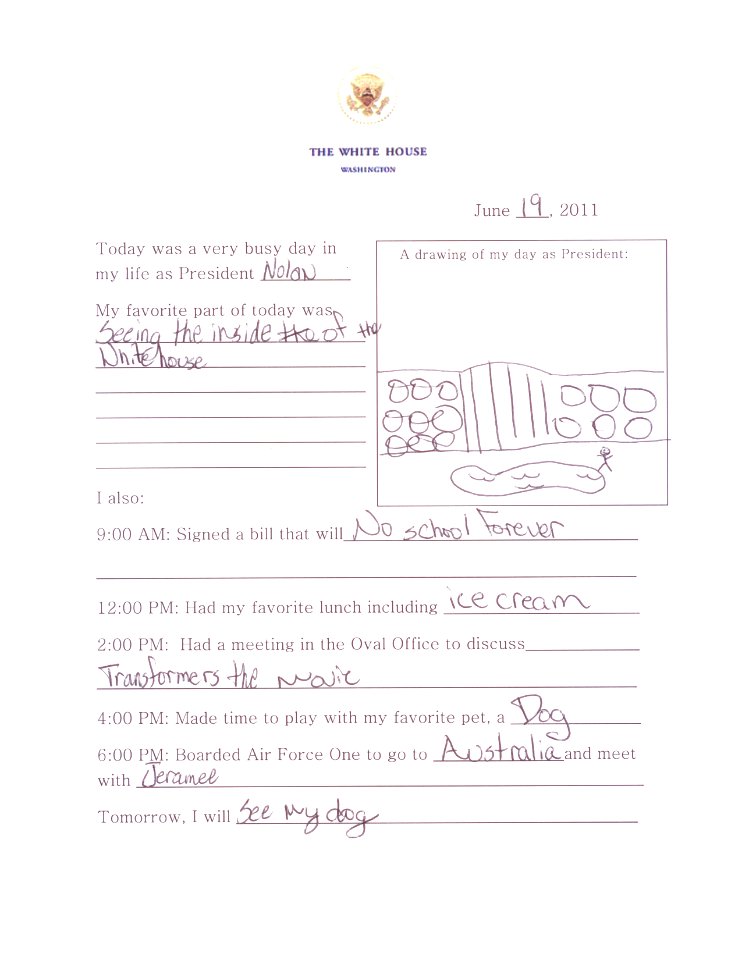 THE WHITE HOUSE
WASHINGTON
June 19, 2011
Today was a very busy day in
my life as President Nolan
My favorite part of today was
Seeing the inside of the
White house
A drawing of my day as President:
I also:
9:00 AM: Signed a bill that will No school Forever
12:00 PM: Had my favorite lunch including ice cream
2:00 PM: Had a meeting in the Oval Office to discuss
Transformers the movie
4:00 PM: Made time to play with my favorite pet, a Dog
6:00 PM: Boarded Air Force One to go to Australia and meet
with Jeramee
Tomorrow, I will See My dog